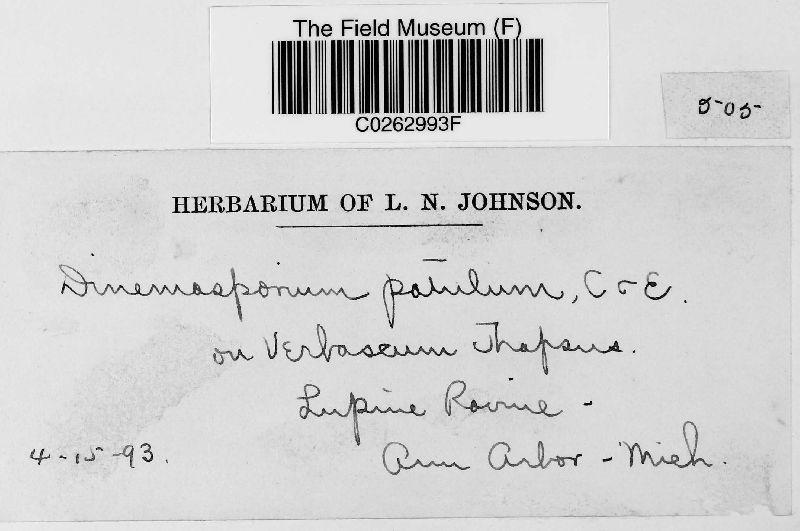 The Field Museum (F)
C0262993F
505
HERBARIUM OF L. N. JOHNSON.
Dinemasporium patulum, C & E.
on Verbascum Thapsus.
Lupine Ravine -
4-15-93.
Ann Arbor - Mich.